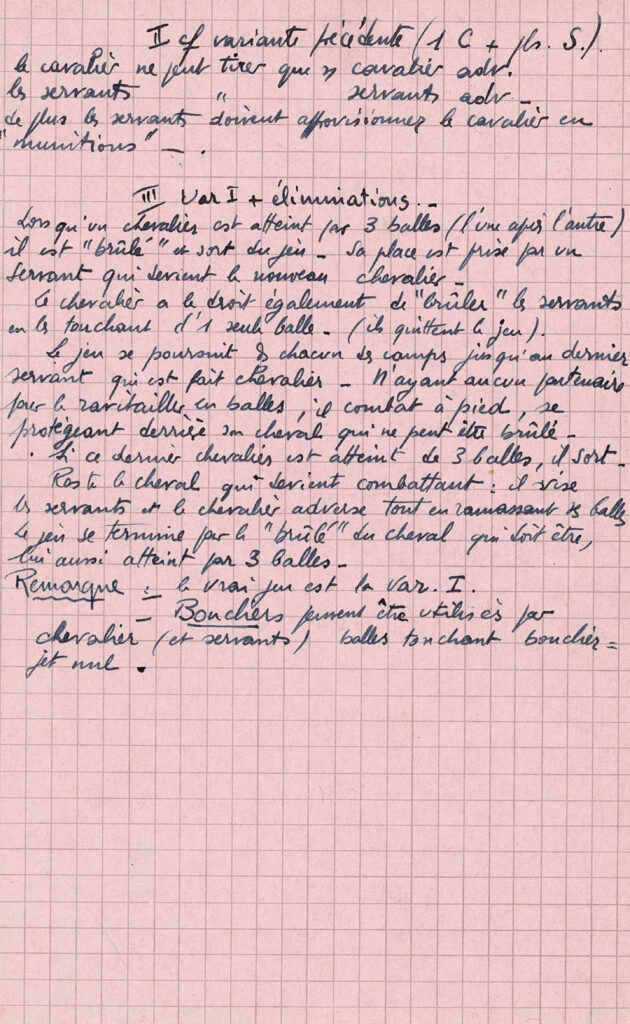 II cf variante précédente (1 C + pls. S.).
le cavalier ne peut tirer que sr cavalier adv.
les servants " servants adv —
de plus les servants doivent approvisionner le cavalier en
"munitions" — .
III Var I + éliminations. —
Lorsqu'un chevalier est atteint par 3 balles (l'une après l'autre)
il est "brûlé" et sort du jeu — Sa place est prise par un
servant qui devient le nouveau chevalier —
Le chevalier a le droit également de "brûler" les servants
en les touchant d'1 seule balle — (ils quittent le jeu).
Le jeu se poursuit ds chacun des camps jusqu'au dernier
servant qui est fait chevalier — N'ayant aucun partenaire
pour le ravitailler en balles, il combat à pied, se
protégeant derrière son cheval qui ne peut être brûlé —
. Si ce dernier chevalier est atteint de 3 balles, il sort —
Reste le cheval qui devient combattant : il vise
les servants et le chevalier adverse tout en ramassant ds balles
Le jeu se termine par le "brûlé" du cheval qui doit être,
lui aussi atteint par 3 balles —
Remarque : — le vrai jeu est la Var. I.
— Boucliers peuvent être utilisés par
chevalier (et servants) balles touchant bouclier =
jet nul .